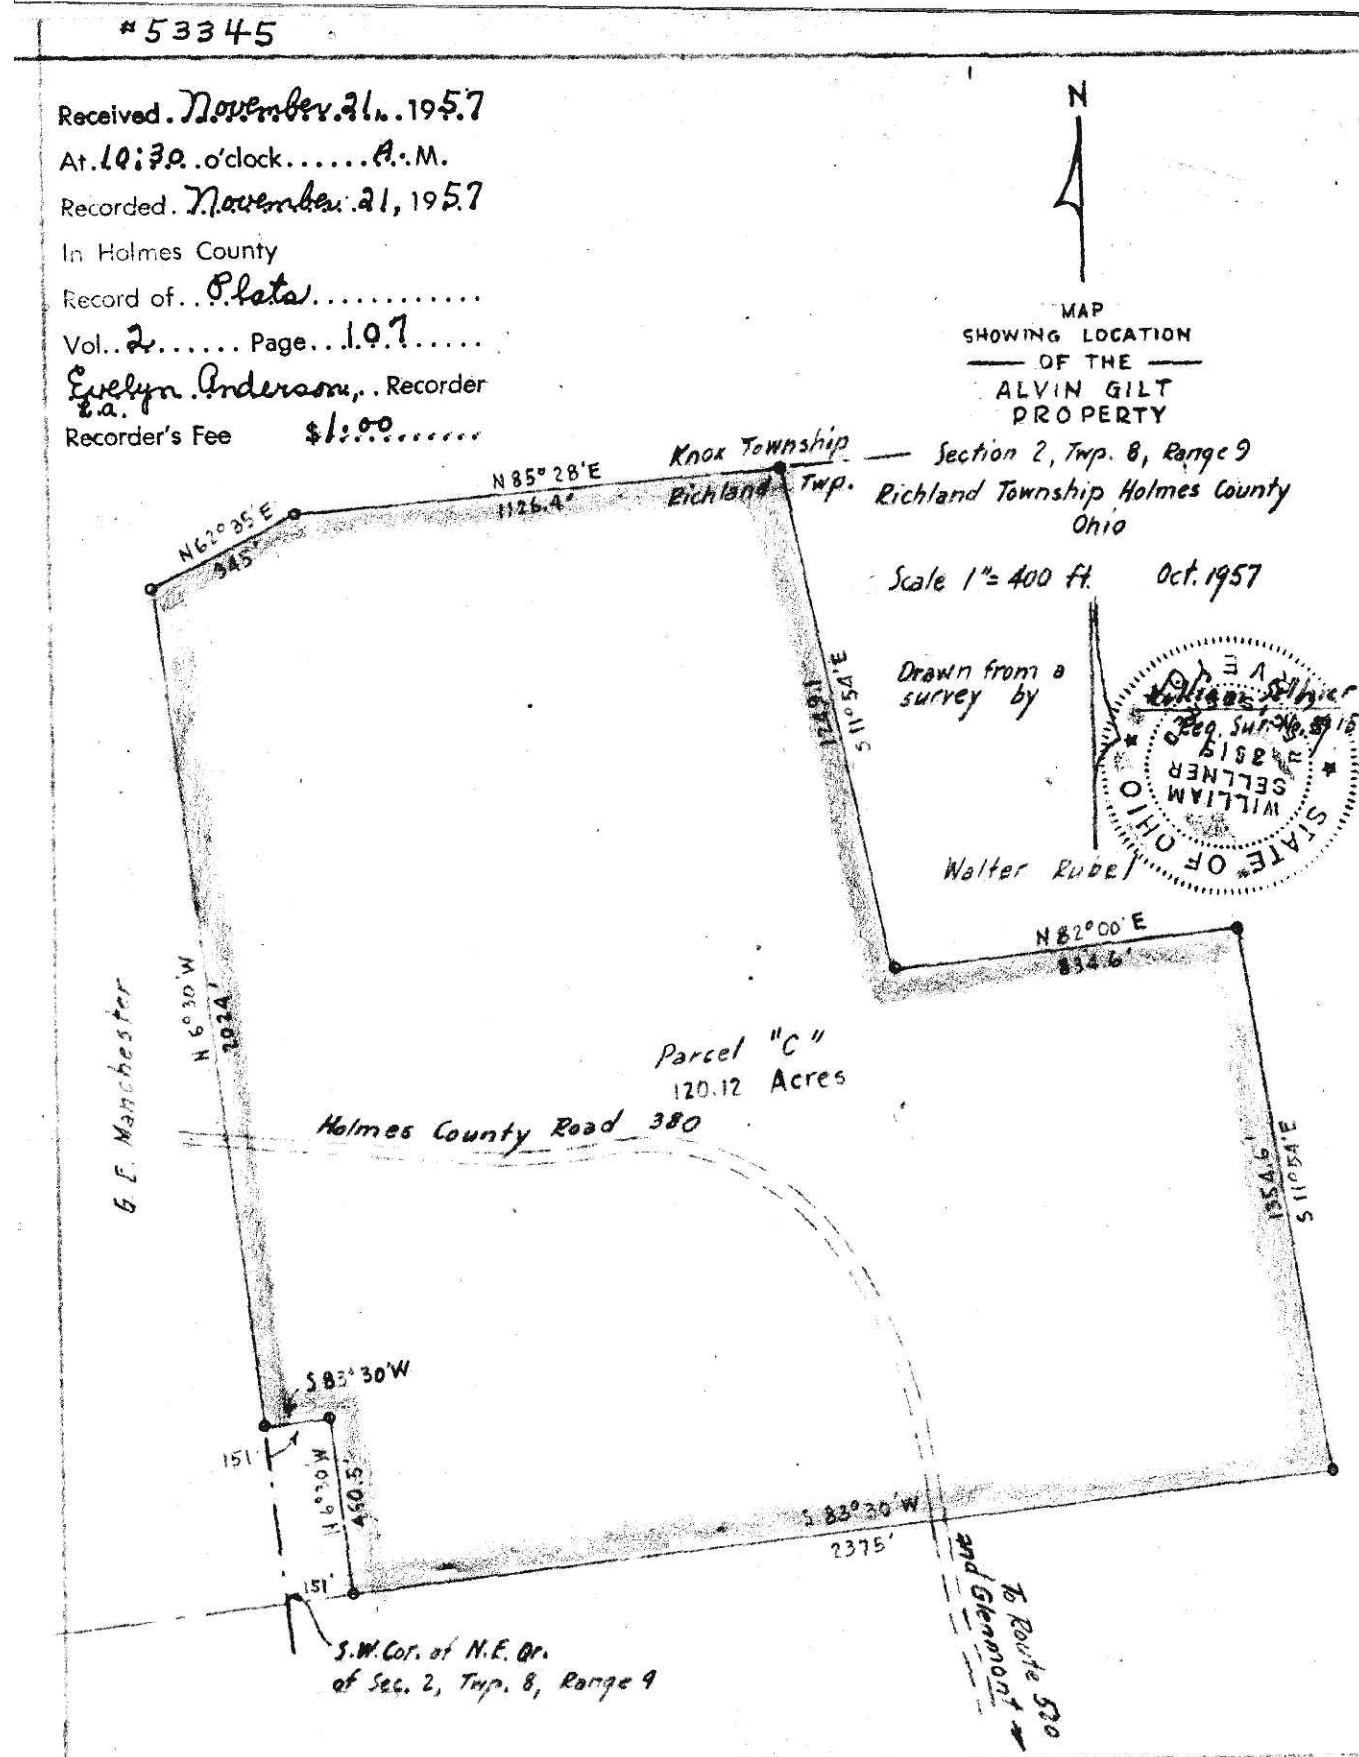 #53345
Received. November 21, 1957
At. 10:30. o'clock...... A. M.
Recorded. November 21, 1957
In Holmes County
Record of.. Plats............
Vol.. 2...... Page... 107.....
Evelyn Anderson,.. Recorder
Recorder's Fee $1.00............
N
MAP
SHOWING LOCATION
OF THE
ALVIN GILT
PROPERTY
Section 2, Twp. 8, Range 9
Richland Township Holmes County
Ohio
Scale 1"= 400 ft. Oct. 1957
Drawn from a
survey by
William Sellner
Reg. Sur. No.
STATE OF OHIO
WILLIAM
SELLNER
Walter Rubel
Knox Township
Richland Twp.
N 62° 35' E
345'
N 85° 28' E
1126.4'
1249.1
S 11° 54' E
N 82° 00' E
834.6'
1354.6'
S 11° 54' E
N 6° 30' W
2024'
G. E. Manchester
Parcel "C"
120.12 Acres
Holmes County Road 380
S 83° 30' W
151'
N 6° 30' W
460.5'
S 83° 30' W
2375'
151'
S.W. Cor. of N.E. Qr.
of Sec. 2, Twp. 8, Range 9
To Route 520
and Glenmont